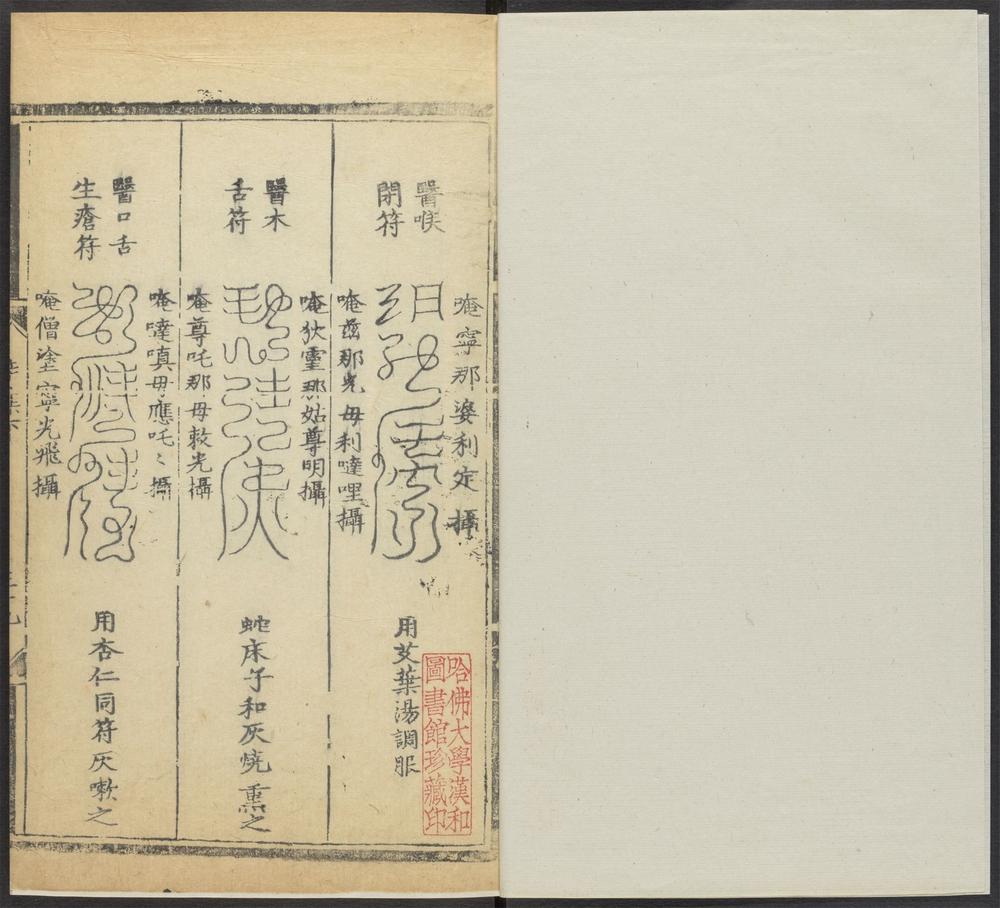 醫喉
閉符
唵寧那婆利定攝
唵茲那光毋利噠哩攝
用艾葉湯調服
哈佛大學漢和
圖書館珍藏印
醫木
舌符
唵狄靈那姑尊明攝
唵尊吒那毋敕光攝
蛇床子和灰燒熏之
醫口舌
生瘡符
唵噠嗔毋應吒〻攝
唵僧塗寧光飛攝
用杏仁同符灰嗽之